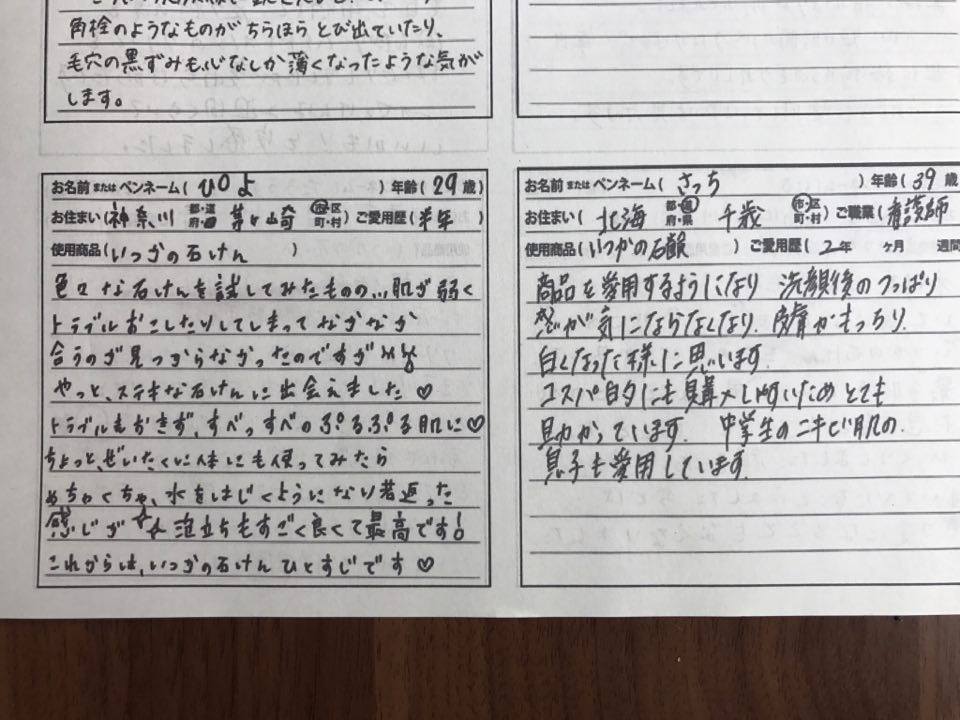 角栓のようなものがちらほらとび出ていたり、
毛穴の黒ずみも心なしか薄くなったような気が
します。
お名前またはペンネーム( ひよ )年齢(29歳)
お住まい(神奈川 都・道府・県 茅ヶ崎 市・区町・村)ご愛用歴(半年 )
使用商品(いつかの石けん )
色々な石けんを試してみたものの...肌が弱く
トラブルおこしたりしてしまって なかなか
合うのが見つからなかったのですが
やっと、ステキな石けんに出会えました♡
トラブルもおきず、すべっすべのぷるぷる肌に♡
ちょっと、ぜいたくに体にも使ってみたら
めちゃくちゃ、水をはじくようになり若返った
感じが 泡立ちもすごく良くて最高です!
これからは、いつかの石けん ひとすじです♡
お名前またはペンネーム( さっち )年齢(39歳
お住まい( 北海 都・道府・県 千歳 市・区町・村)ご職業(看護師
使用商品(いつかの石鹸 )ご愛用歴( 2年 ヶ月 週間
商品を愛用するようになり 洗顔後のつっぱり
感が気にならなくなり、皮膚がもっちり、
白くなった様に思います。
コスパ的にも購入しやすいため とても
助かっています。 中学生のニキビ肌の、
息子も愛用しています。